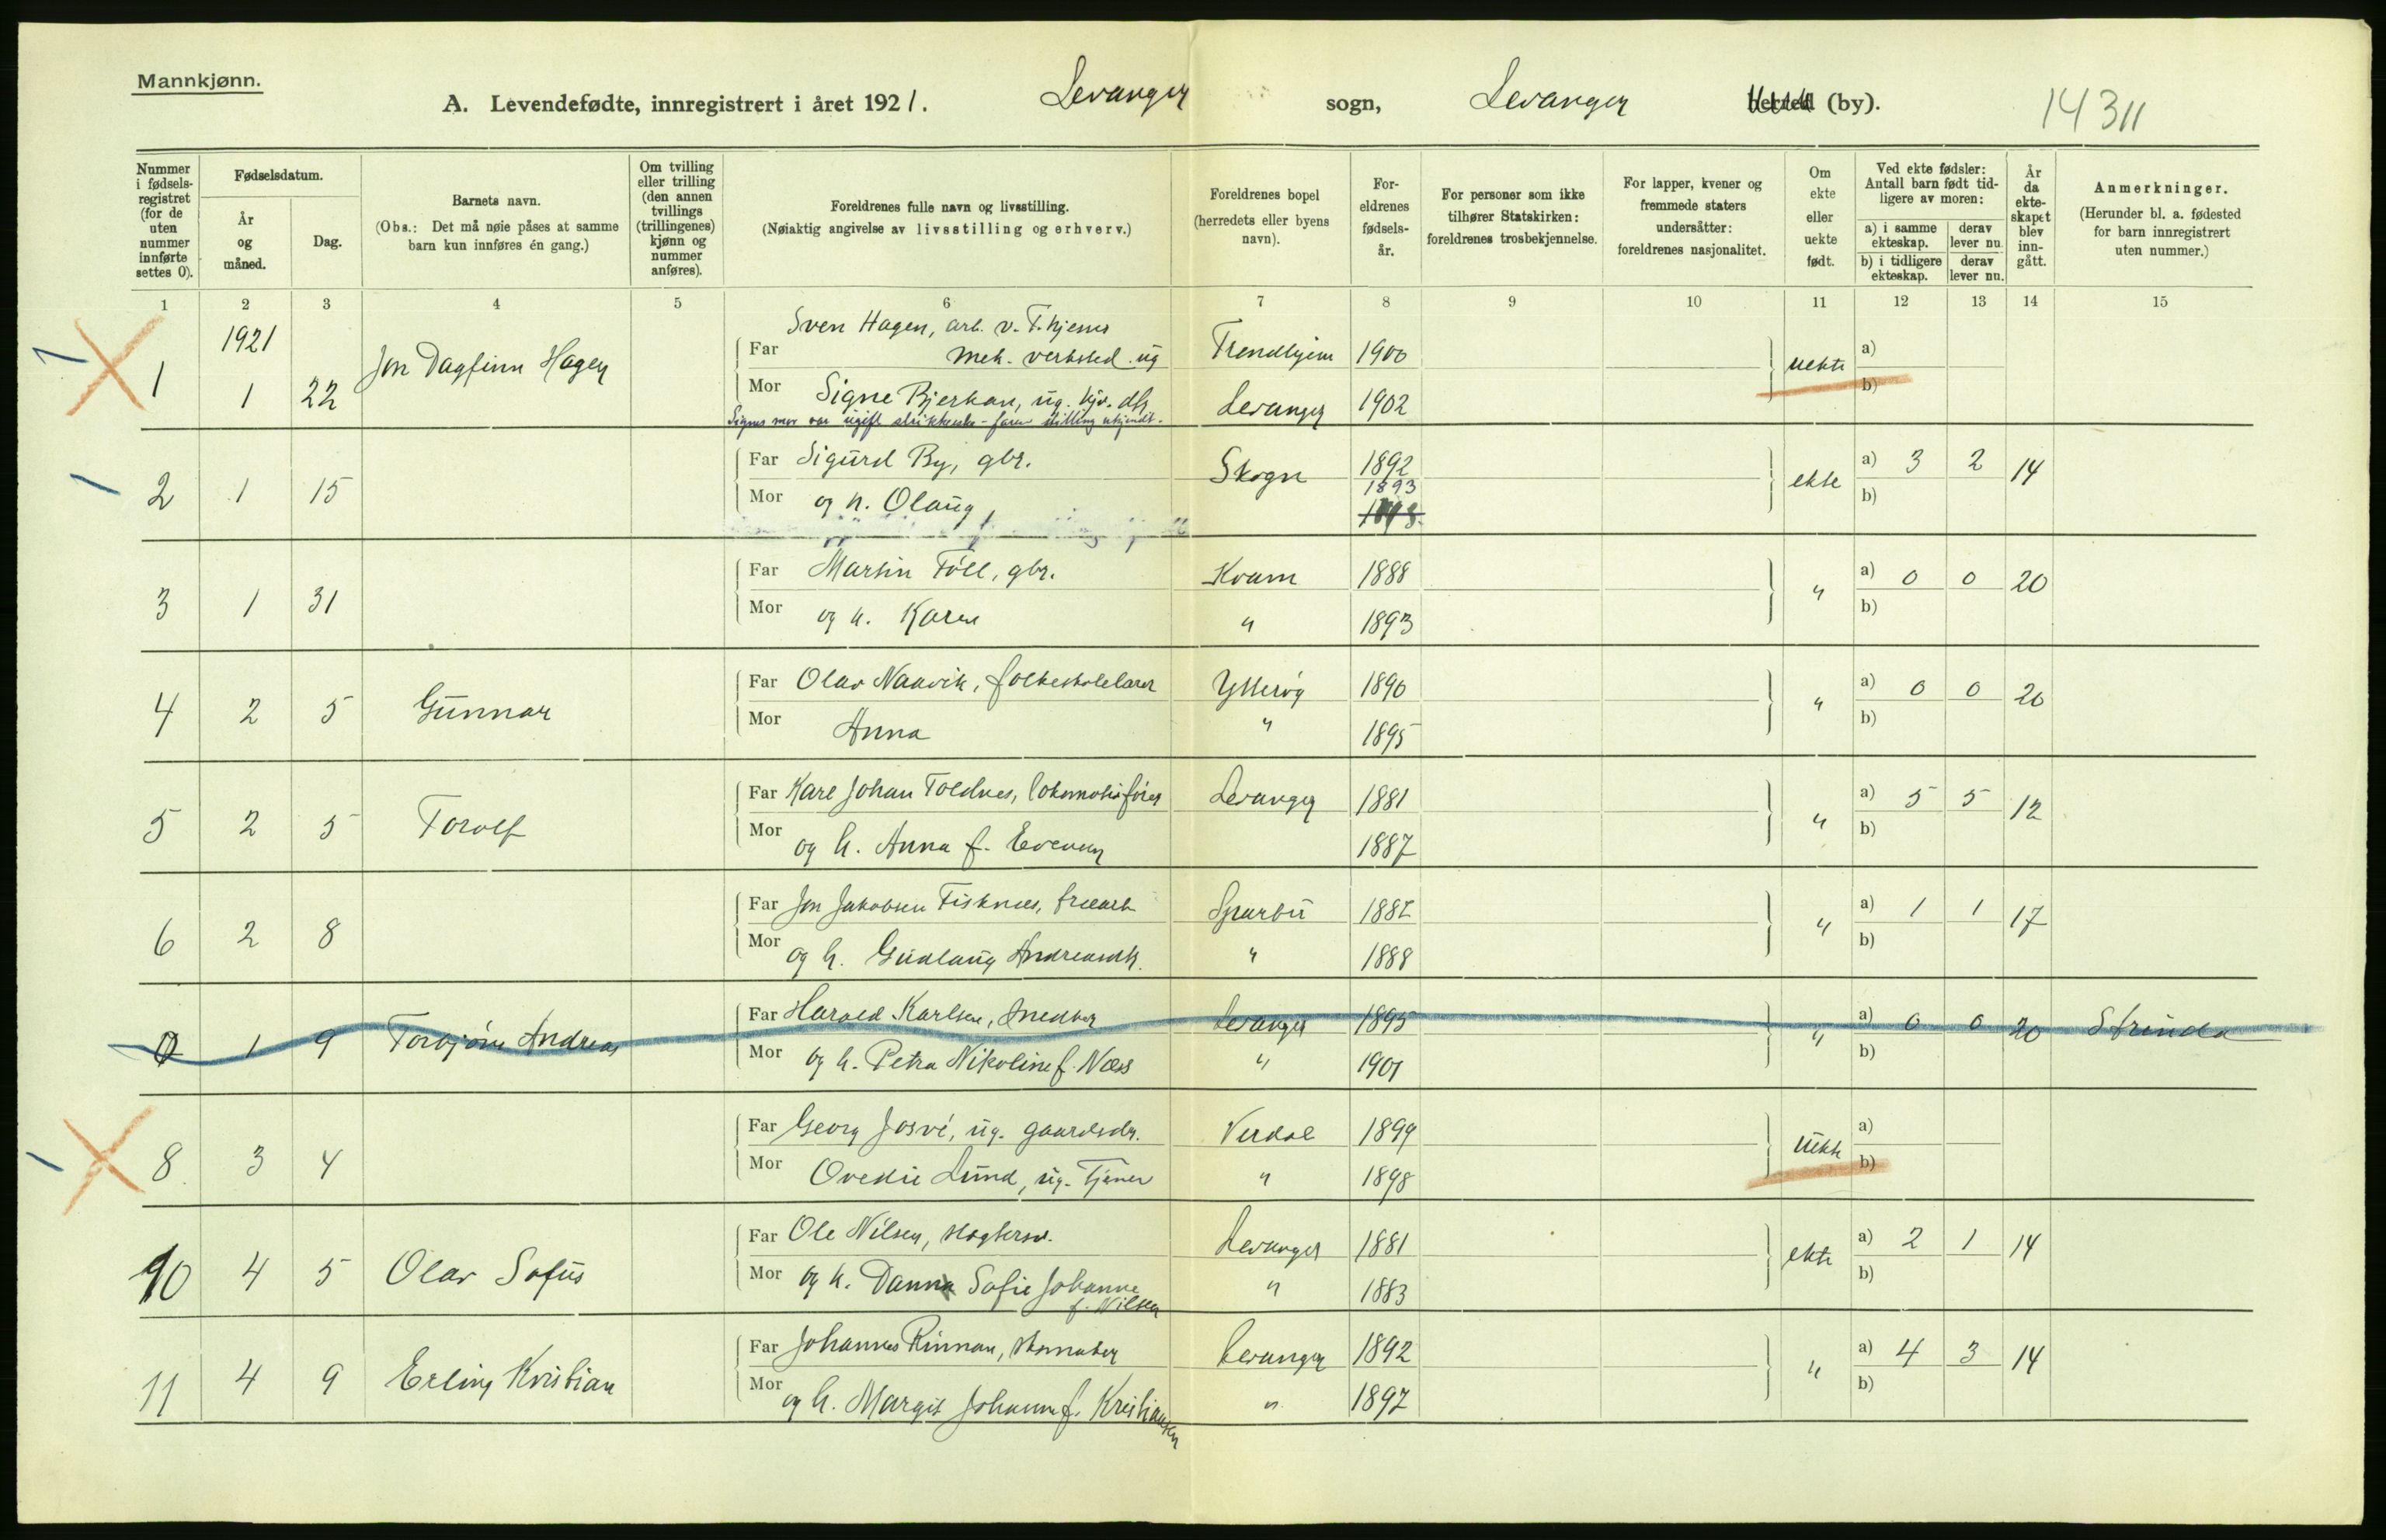 Mannkjønn.
A. Levendefødte, innregistrert i året 1921. Levanger sogn, Levanger herred (by). 14311
Nummer i fødselsregistret (for de uten nummer innførte settes 0).
Fødselsdatum.
År og måned.
Dag.
Barnets navn.
(Obs.: Det må nøie påses at samme barn kun innføres én gang.)
Om tvilling eller trilling (den annen tvillings (trillingenes) kjønn og nummer anføres).
Foreldrenes fulle navn og livsstilling.
(Nøiaktig angivelse av livsstilling og erhverv.)
Foreldrenes bopel (herredets eller byens navn).
Foreldrenes fødselsår.
For personer som ikke tilhører Statskirken: foreldrenes trosbekjennelse.
For lapper, kvener og fremmede staters undersåtter: foreldrenes nasjonalitet.
Om ekte eller uekte født.
Ved ekte fødsler: Antall barn født tidligere av moren:
a) i samme ekteskap. derav lever nu.
b) i tidligere ekteskap. derav lever nu.
År da ekteskapet blev inngått.
Anmerkninger.
(Herunder bl. a. fødested for barn innregistrert uten nummer.)
1 2 3 4 5 6 7 8 9 10 11 12 13 14 15
1921
Sven Hagen, arb. v. T.hjems
1 1 22 Jon Dagfinn Hagen Far mek. verksted. ug Trondhjem 1900 uekte a)
Mor Signe Bjerkan, ug. hjv. dtr Levanger 1902 b)
Signes mor var ugift - stilling ukjendt.
2 1 15 Far Sigurd By, gbr. Skogn 1892 ekte a) 3 2 14
Mor og h. Olaug, 1893 b)
3 1 31 Far Martin Föll, gbr. Kvam 1888 " a) 0 0 20
Mor og h. Karen " 1893 b)
4 2 5 Gunnar Far Olav Naavik, folkeskolelærer Ytterøy 1890 " a) 0 0 20
Mor Anna " 1895 b)
5 2 5 Torolf Far Karl Johan Toldnes, lokomotivförer Levanger 1881 " a) 5 5 12
Mor og h. Anna f. Evensen 1887 b)
6 2 8 Far Jon Jakobsen Fisknes, Sparbu 1887 " a) 1 1 17
Mor og h. Gudlaug Andreasdtr. " 1888 b)
0 1 9 Torbjörn Andreas Far Harald Karlsen, snekker Levanger 1895 " a) 0 0 20 Strinda
Mor og h. Petra Nikoline f. Næss " 1901 b)
8 3 4 Far Georg ug. gaardsdr. Verdal 1899 uekte a)
Mor Ovedie Lund, ug. Tjener " 1898 b)
10 4 5 Olav Sofus Far Ole Nilsen, slagtersv. Levanger 1881 ekte a) 2 1 14
Mor og h. Danna Sofie Johanne " 1883 b)
f. Nilsen
11 4 9 Erling Kristian Far Johannes Rinnan, skomaker Levanger 1892 " a) 4 3 14
Mor og h. Margit Johanne f. Kristiansen " 1897 b)